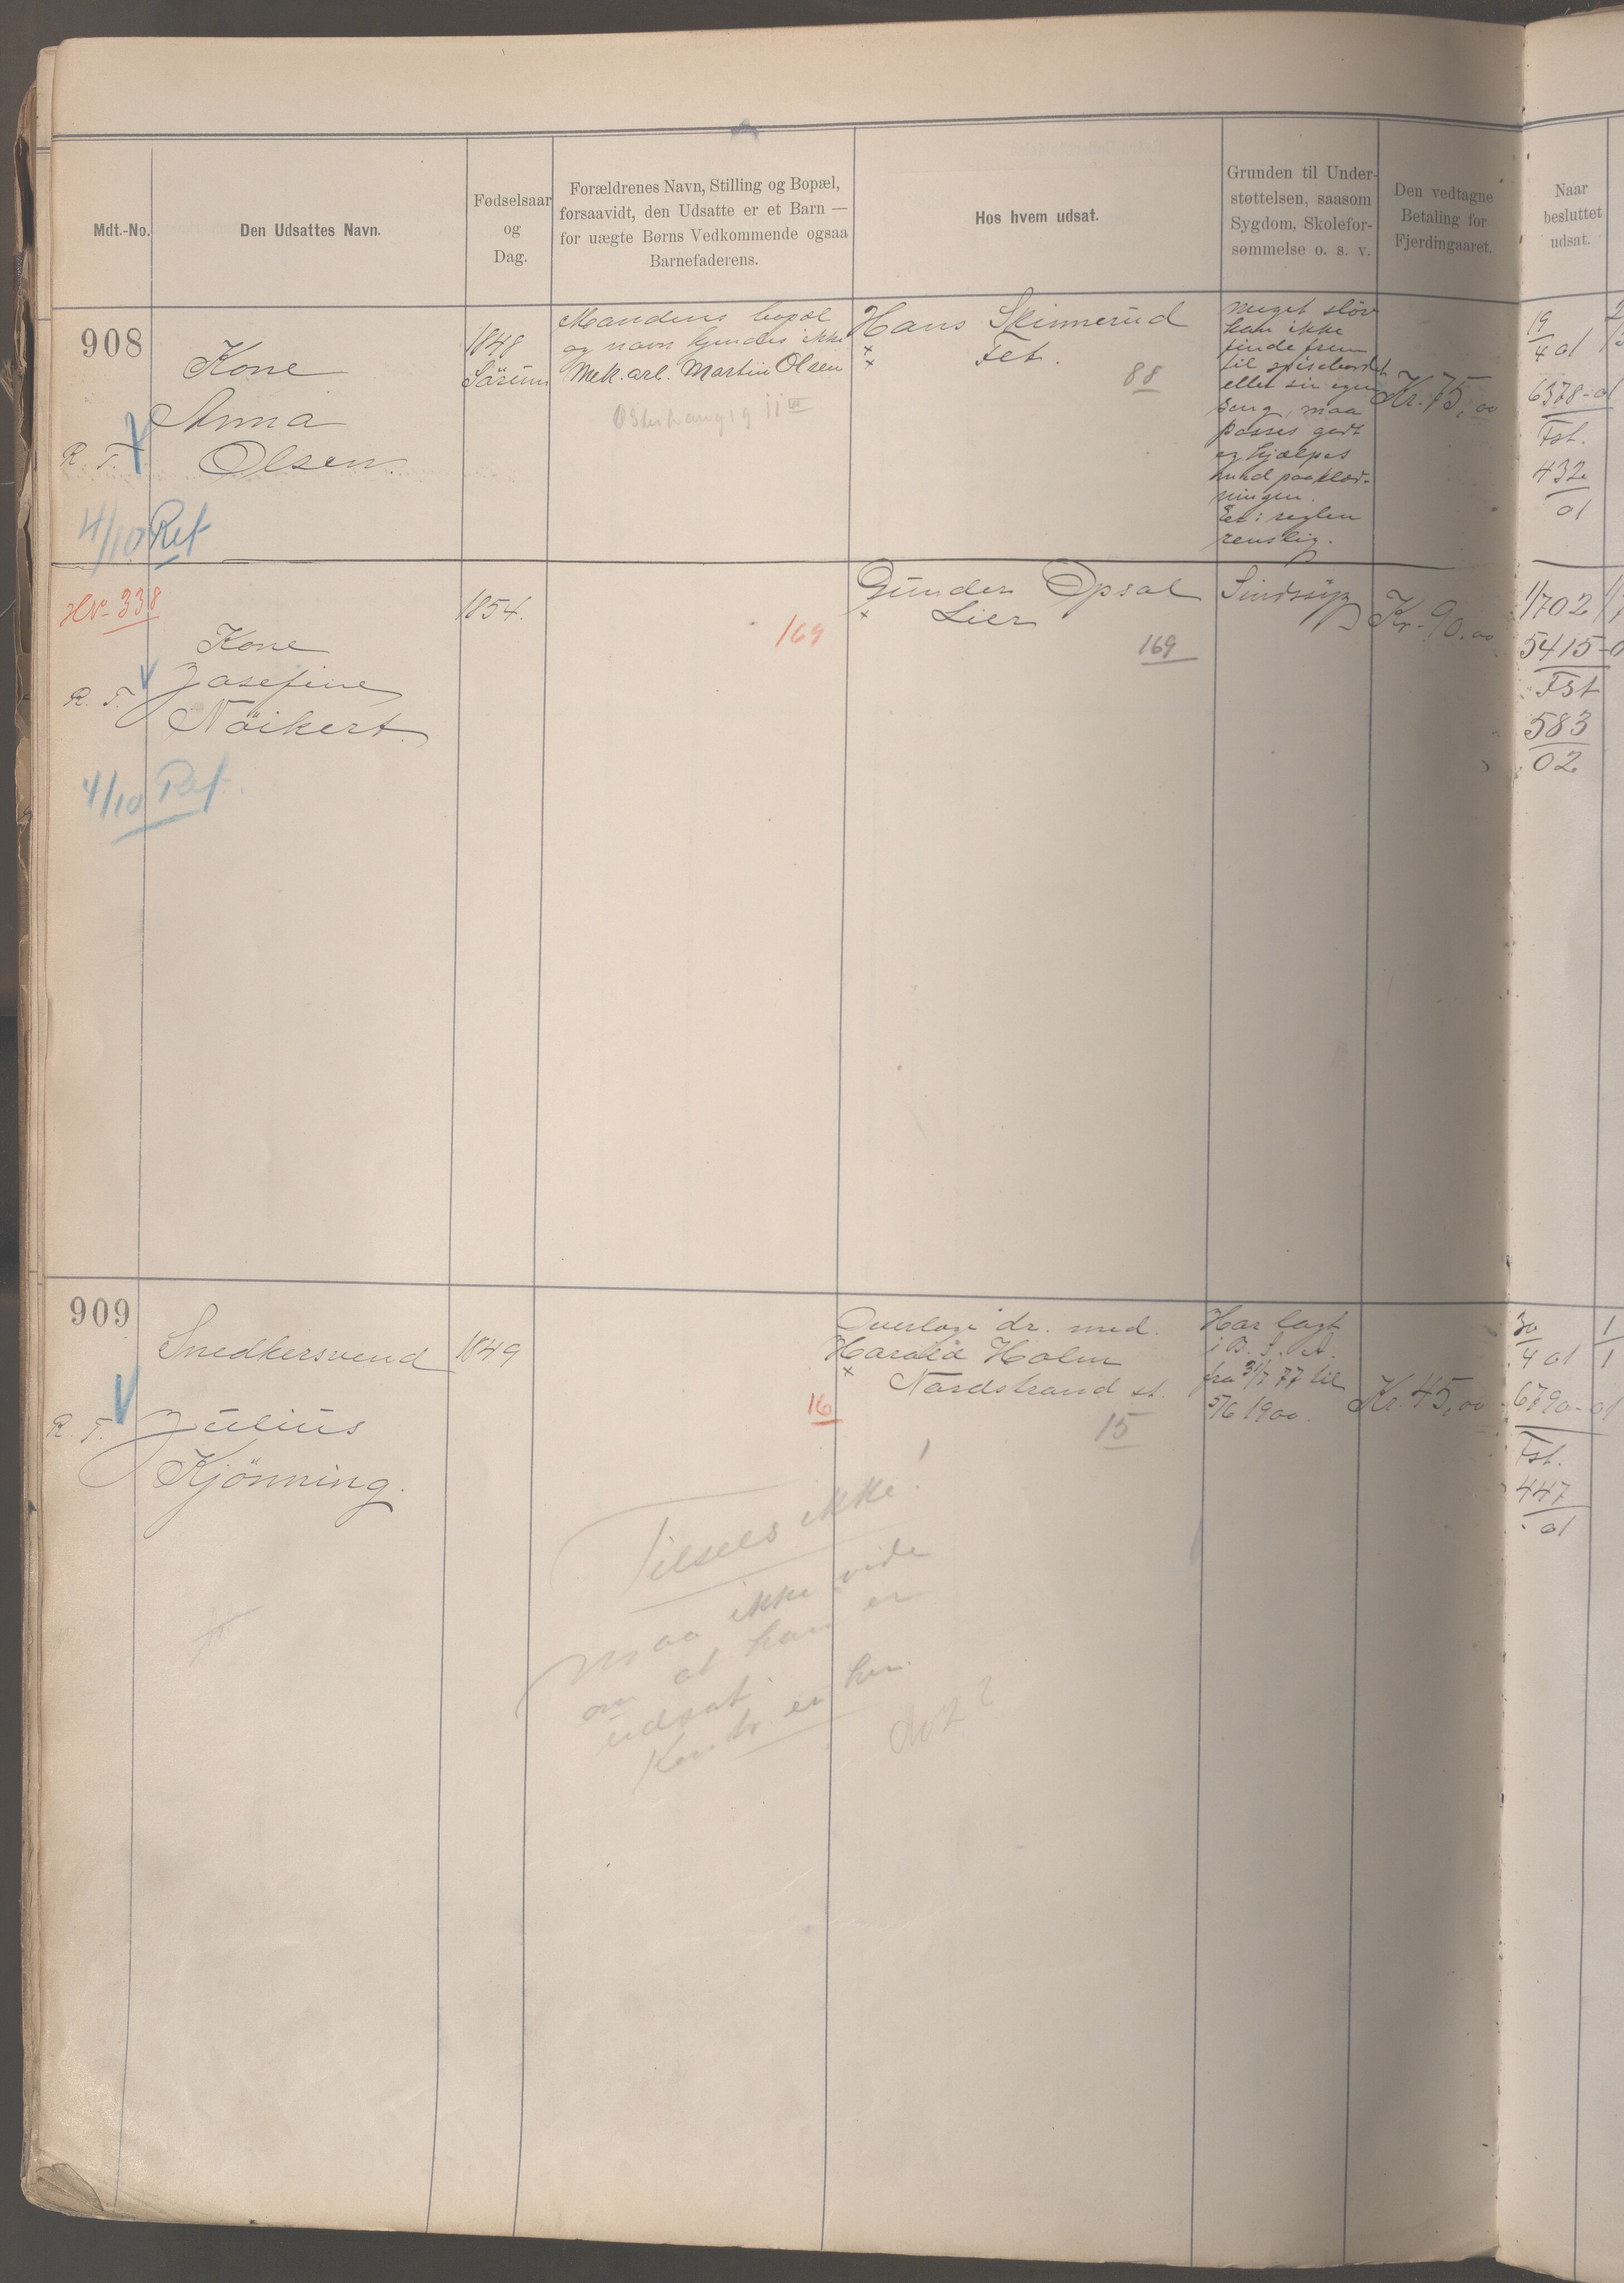 Mdt.-No.
Den Udsattes Navn.
Fødselsaar
og
Dag.
Forældrenes Navn, Stilling og Bopæl,
forsaavidt, den Udsatte er et Barn —
for uægte Børns Vedkommende ogsaa
Barnefaderens.
Hos hvem udsat.
Grunden til Under-
støttelsen, saasom
Sygdom, Skolefor-
sømmelse o. s. v.
Den vedtagne
Betaling for
Fjerdingaaret.
Naar
besluttet
udsat.
908
R. T.
4/10 Ref
Kone
Anna
Olsen
1848
Sörum
Mandens bopæl
og navn kjendes ikke
Mek. arb. Martin Olsen
Hans Skinnerud
× Fet.
×
88
Meget sløv
kan ikke
finde frem
til spisebordet
eller sin egen
seng, maa
passes godt
og hjælpes
med paaklæd-
ningen.
Er i reglen
renslig.
Kr. 75,00
19
4 01
6378-01
Fst.
432
01
Nr. 338
R. T.
4/10 Ref.
Kone
Josefine
Nöikert.
1854.
169
Gunder Opsal
× Lier
169
Sindssyg
Kr. 90.00
1/702
5415-0
Fst
583
02
909
R. T.
Snedkersvend
Julius
Kjönning.
1849
16
Overlæge dr. med.
Harald Holm
× Nordstrand st.
15
Har lagt
i B. S. A.
fra 31/7 77 til
5/6 1900.
Kr. 45,00
30
4 01
6790-01
Fst.
447
01
1
1
Tilsees ikke!
maa ikke vide
om at han er
udsat.